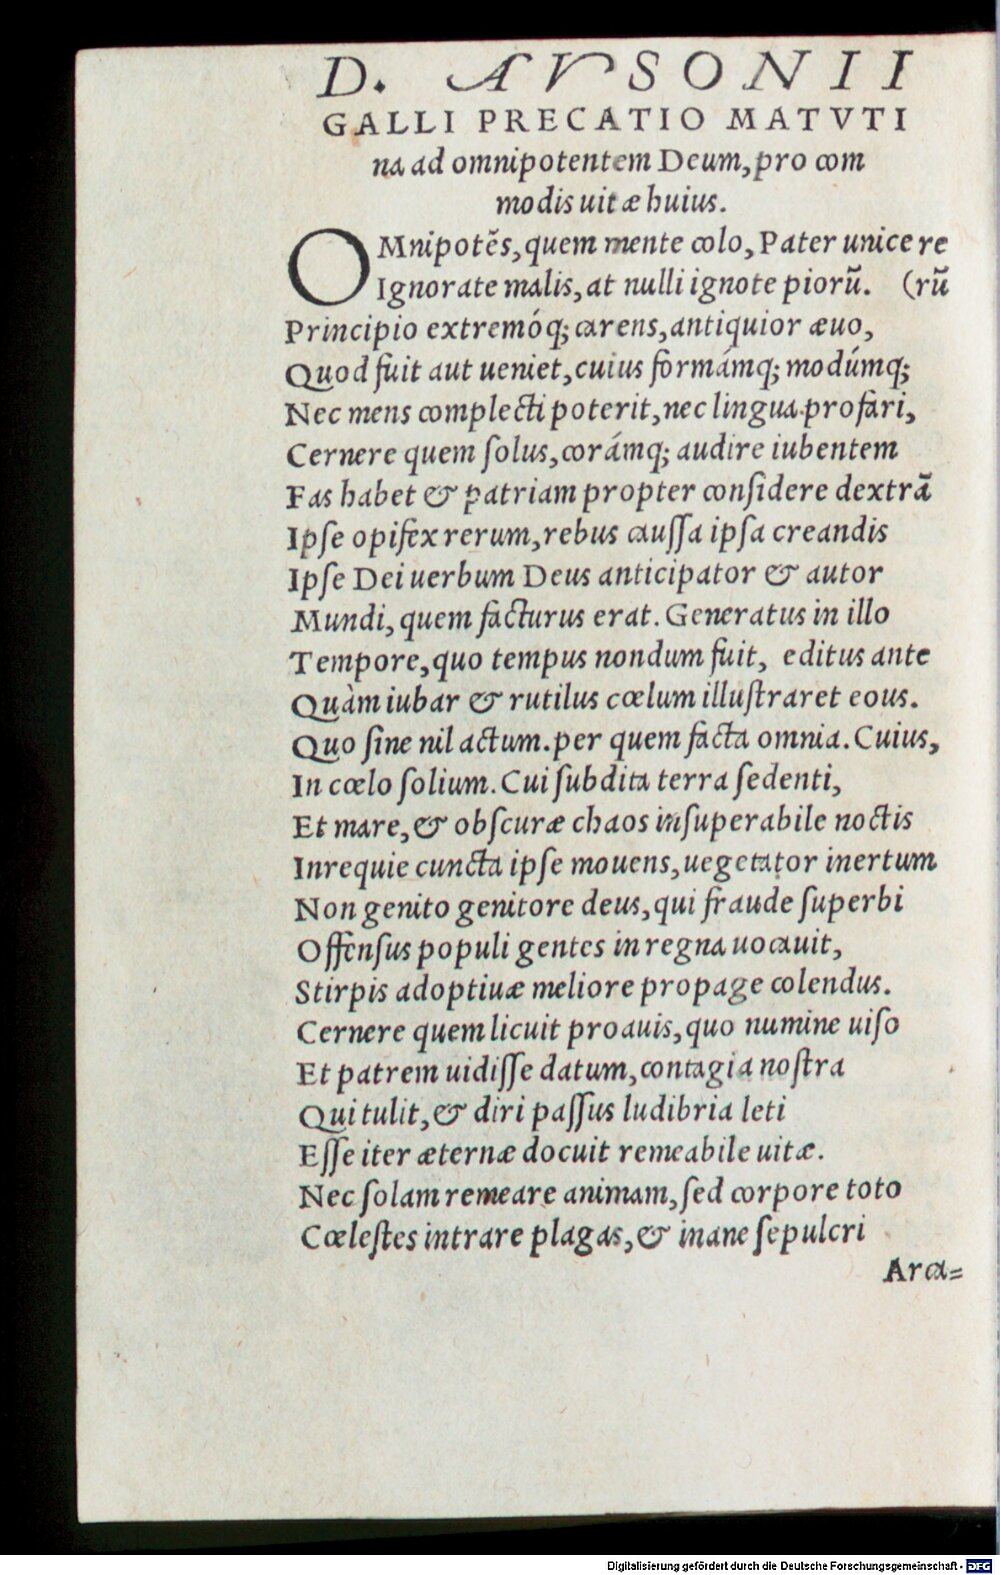 D. AVSONII
GALLI PRECATIO MATVTI
na ad omnipotentem Deum, pro com
modis uitæ huius.
OMnipotẽs, quem mente colo, Pater unice re
Ignorate malis, at nulli ignote piorũ. (rũ
Principio extremóq; carens, antiquior æuo,
Quod fuit aut ueniet, cuius formámq; modúmq;
Nec mens complecti poterit, nec lingua profari,
Cernere quem ſolus, corámq; audire iubentem
Fas habet & patriam propter conſidere dextrã
Ipſe opifex rerum, rebus cauſſa ipſa creandis
Ipſe Dei uerbum Deus anticipator & autor
Mundi, quem facturus erat. Generatus in illo
Tempore, quo tempus nondum fuit, editus ante
Quàm iubar & rutilus cœlum illuſtraret eous.
Quo ſine nil actum. per quem facta omnia. Cuius,
In cœlo ſolium. Cui ſubdita terra ſedenti,
Et mare, & obſcuræ chaos inſuperabile noctis
Inrequie cuncta ipſe mouens, uegetator inertum
Non genito genitore deus, qui fraude ſuperbi
Offenſus populi gentes in regna uocauit,
Stirpis adoptiuæ meliore propage colendus.
Cernere quem licuit proauis, quo numine uiſo
Et patrem uidiſſe datum, contagia noſtra
Qui tulit, & diri paſſus ludibria leti
Eſſe iter æternæ docuit remeabile uitæ.
Nec ſolam remeare animam, ſed corpore toto
Cœleſtes intrare plagas, & inane ſepulcri
Arca=
Digitalisierung gefördert durch die Deutsche Forschungsgemeinschaft - DFG